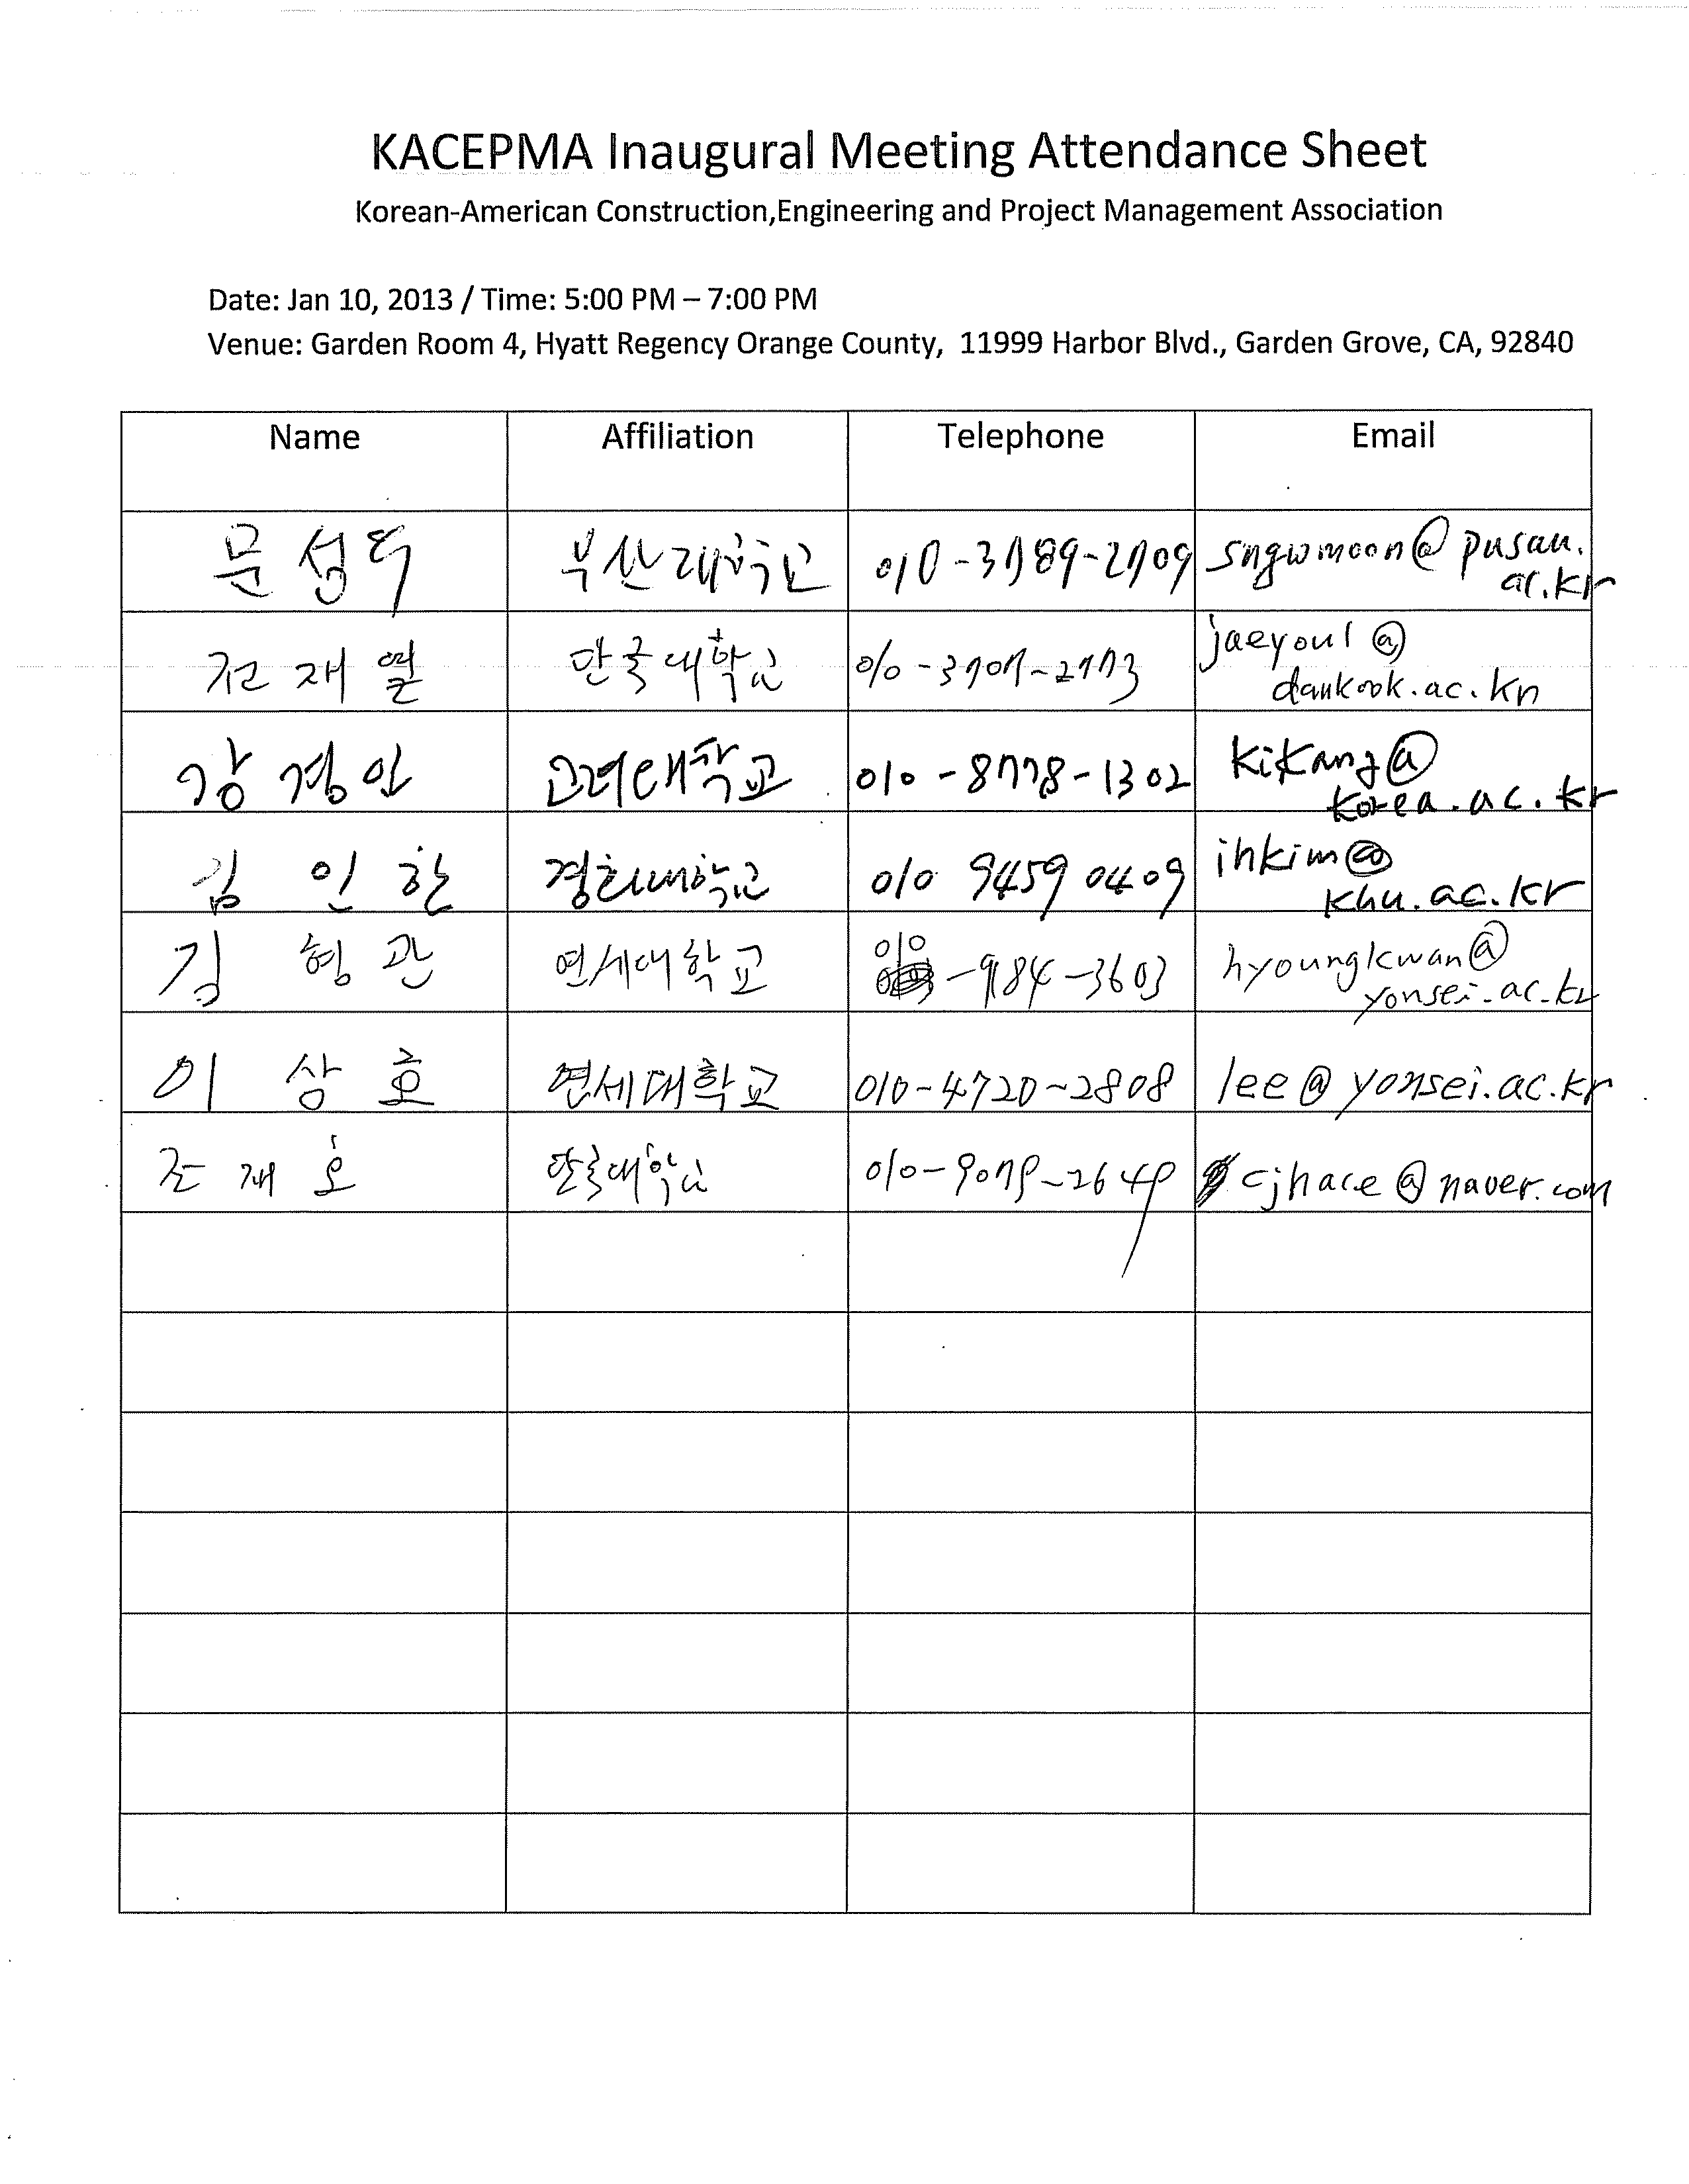 KACEPMA Inaugural Meeting Attendance Sheet
Korean-American Construction,Engineering and Project Management Association
Date: Jan 10, 2013 / Time: 5:00 PM – 7:00 PM
Venue: Garden Room 4, Hyatt Regency Orange County, 11999 Harbor Blvd., Garden Grove, CA, 92840
Name Affiliation Telephone Email
문성우 부산대학교 010-3789-2709 sngwmoon@pusan.
ac.kr
전재열 단국대학교 010-3707-2773 jaeyoul@
dankook.ac.kr
강경인 고려대학교 010-8778-1302 kikang@
korea.ac.kr
김인한 경희대학교 010 9459 0409 ihkim@
khu.ac.kr
김형관 연세대학교 010-9184-3603 hyoungkwan@
yonsei.ac.kr
이상호 연세대학교 010-4720-2808 lee@yonsei.ac.kr
조재호 단국대학교 010-9079-2649 cjhace@naver.com